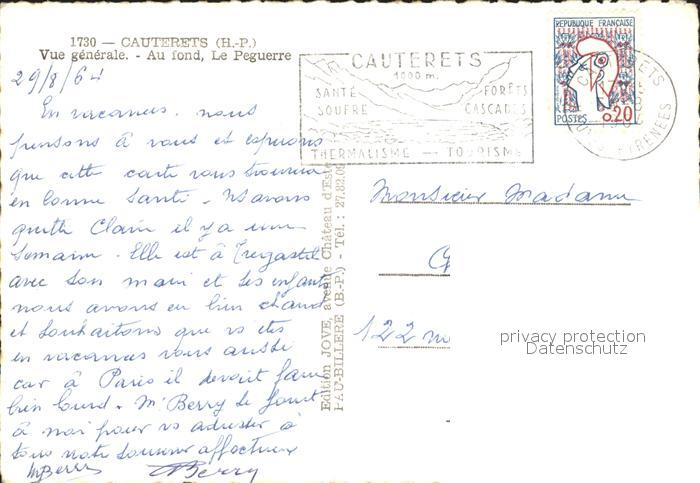 1730 — CAUTERETS (H.-P.)
Vue générale. - Au fond, Le Peguerre
29/8/64
En vacances. nous
pensons à vous et esperons
que cette carte vous trouvera
en bonne Santé. Ns avons
quitté Claire il y a une
Semaine. Elle est à Tregastel
avec Son mari et Ses enfants
nous avons eu bien chaud
et Souhaitons que vs etes
en vacances vous aussi
car à Paris il devait faire
bien lourd. Mr Berry se joint
à moi pour vs adresser à
tous notre souvenir affectueux
MBerry Berry
Edition JOVE, avenue Château d'Este
PAU-BILLERE (B.-P.) - Tél.: 27.82.09
CAUTERETS
1000 m.
SANTÉ FORÊTS
SOUFRE CASCADES
THERMALISME — TOURISME
REPUBLIQUE FRANÇAISE
POSTES 0,20
CAUTERETS
HTES PYRENEES
Monsieur Madame
122
privacy protection
Datenschutz